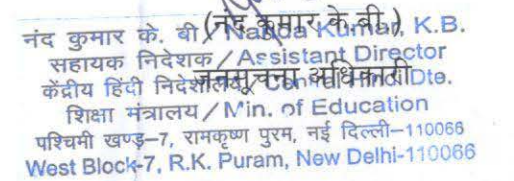 (नंद कुमार के.बी.)
नंद कुमार के. बी./Nanda Kumar, K.B.
सहायक निदेशक/Assistant Director
जनसूचना अधिकारी
केंद्रीय हिंदी निदेशालय/Central Hindi Dte.
शिक्षा मंत्रालय/Min. of Education
पश्चिमी खण्ड–7, रामकृष्ण पुरम, नई दिल्ली–110066
West Block-7, R.K. Puram, New Delhi-110066